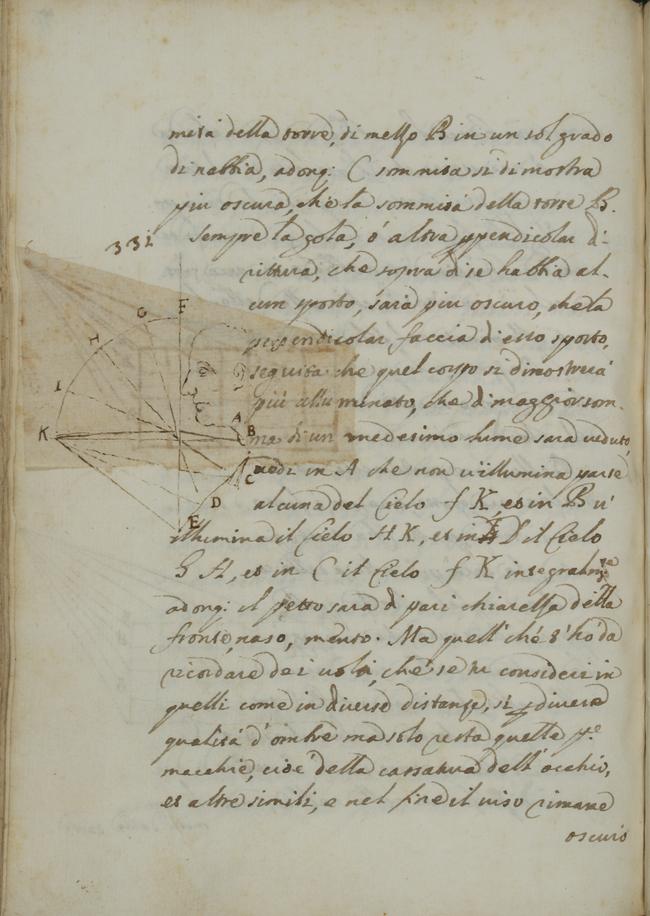 mità della torre, di messo B in un sol grado
di nebbia, adonq: C sommità si dimostra
piu oscura, che la sommità della torre B.
332
Sempre la gola, ó altra ppendicolar di-
rittura, che sopra di se habbia al-
cun sporto, sarà piu oscuro, che la
perpendicolar faccia d'esso sporto,
seguita che quel corpo si dimostrerà
piú alluminato, che di maggior som-
ma di un medesimo lume sarà veduto
vedi in A che non v'illumina parte
alcuna del Cielo f K, et in B v'
illumina il Cielo H K, et in D il Cielo
G H, et in C il Cielo f K integralm.te
adonq: il petto sarà di pari chiarezza della
fronte, naso, mento. Ma quell' ché s' hó da
ricordare de i volti, ché se tu consideri in
quelli come in diverse distanze, si pdivere
qualità d'ombre ma solo resta quelle p.e
macchie, cioè della cassatura dell' occhio,
et altre simili, e nel fine il viso rimane
oscuro
F
G
H
I
K
A
B
C
D
E